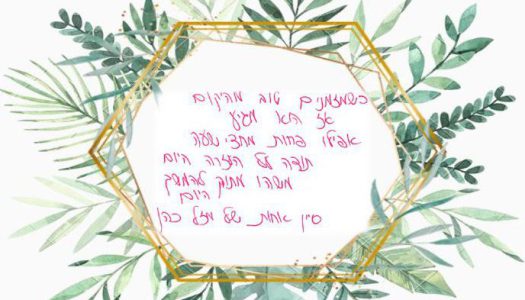 כשמזמנים טוב מהיקום
אז הוא מגיע
אפילו פחות מחצי שעה
תודה על העזרה היום
משהו מתוק להמשך
היום
סיון אחות של מזל כהן